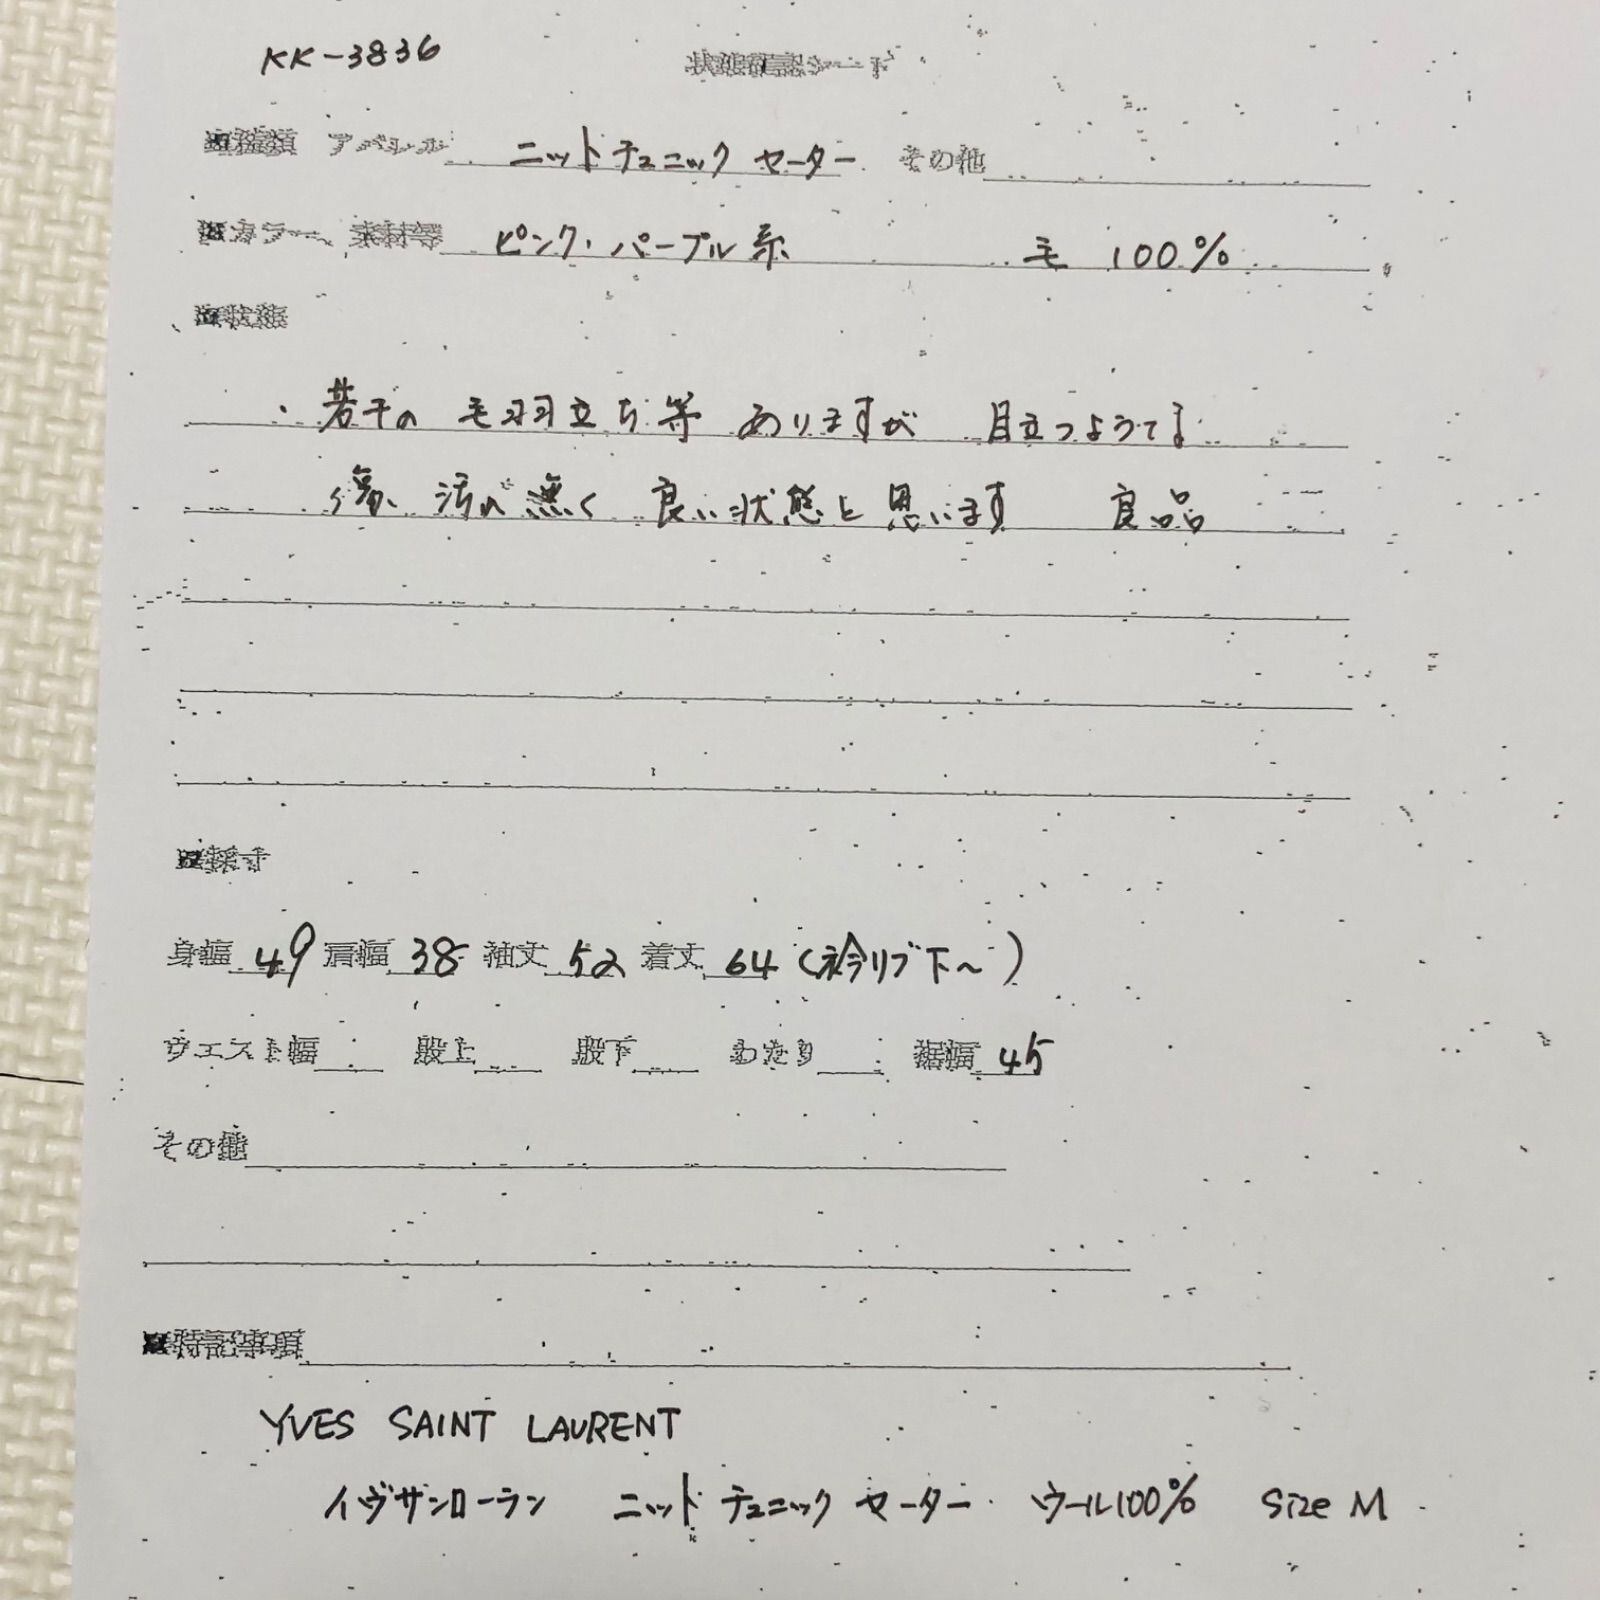 KK-3836
状態確認シート
■種類 アパレル ニットチュニックセーター その他
■カラー、素材等 ピンク・パープル系 毛 100%
■状態
・若干の毛羽立ち等ありますが 目立つような
傷、汚れ無く 良い状態と思います 良品
■採寸
身幅 49 肩幅 38 袖丈 52 着丈 64 (衿リブ下〜)
ウエスト幅 股上 股下 わたり 裾幅 45
その他
■特記事項
YVES SAINT LAURENT
イヴサンローラン ニットチュニックセーター ウール100% Size M